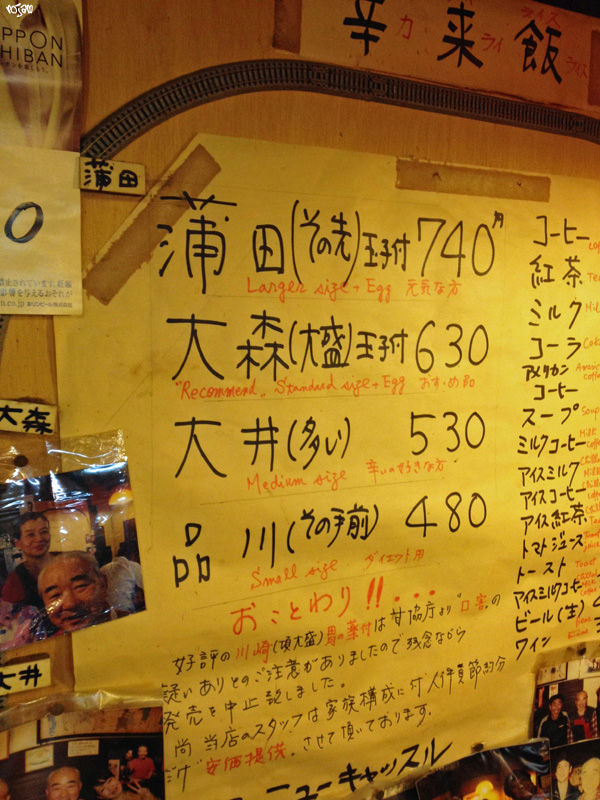 rojam
NIPPON
ICHIBAN
辛来飯
カ ライ ライス
ライス
蒲田
0
蒲田(その先)玉子付740円
Larger size + Egg 元気な方
大森(大盛)玉子付630
"Recommend" Standard size + Egg おすすめ品
大井(多い) 530
Medium size 辛いの好きな方
品川(その手前) 480
Small size ダイエット用
おことわり!!...
好評の川崎(頂大盛)男の薬付は甘協庁より"口害"の
疑いありとのご注意がありましたので残念ながら
発売を中止致しました。
尚 当店のスタッフは家族構成に付人件費節約分
だけ"安価提供"させて頂いております。
ニューキャッスル
コーヒー
紅茶 Tea
ミルク Mil
コーラ Coka
アメリカン
コーヒー coffee
スープ Soup
ミルクコーヒー Milk
アイスミルク
アイスコーヒー
アイス紅茶
トマトジュース
トースト Toast
アイスミルクコーヒー
ビール(生) Beer
ワイン Wine
大森
大井